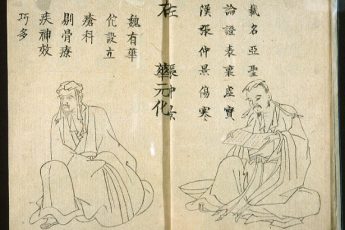 漢張仲景傷寒
論證表裏虛實
載名亞聖
華元化
魏有華
佗設立
瘡科
剔骨療
疾神效
巧多